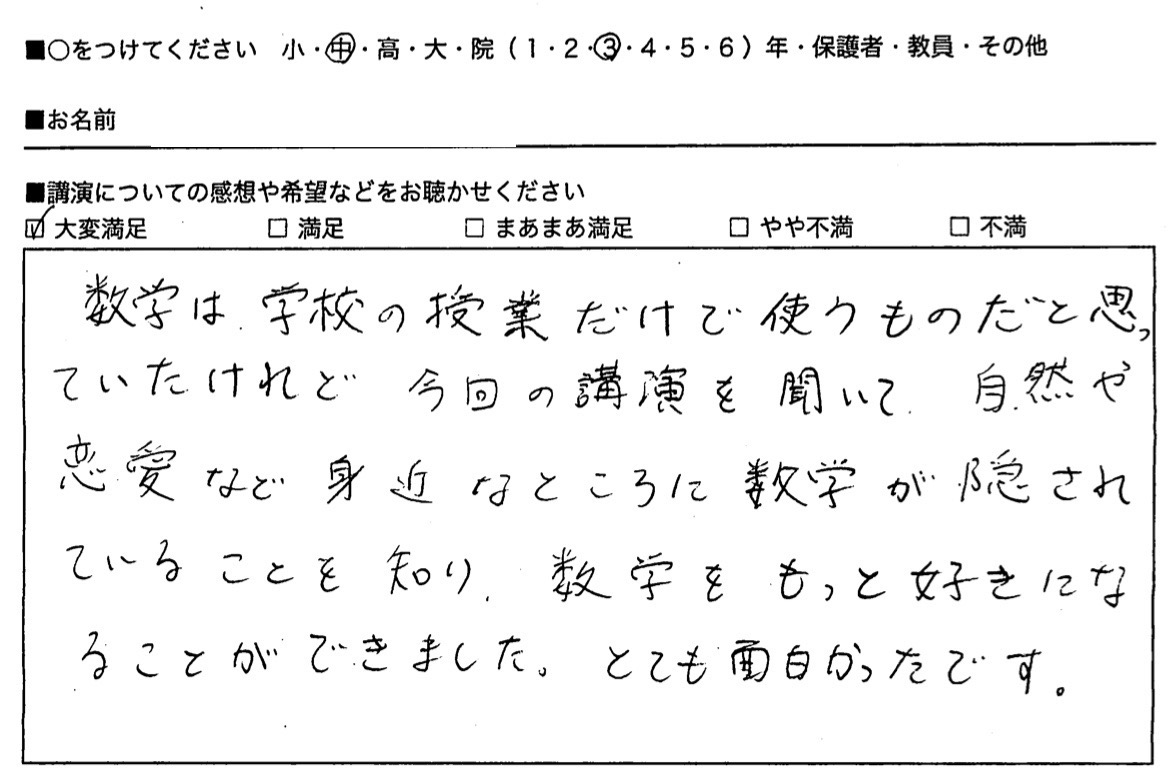 ■○をつけてください 小・中・高・大・院(1・2・3・4・5・6)年・保護者・教員・その他
■お名前
■講演についての感想や希望などをお聴かせください
☑ 大変満足 □ 満足 □ まあまあ満足 □ やや不満 □ 不満
数学は学校の授業だけで使うものだと思っ
ていたけれど今回の講演を聞いて、自然や
恋愛など身近なところに数学が隠され
ていることを知り、数学をもっと好きにな
ることができました。とても面白かったです。